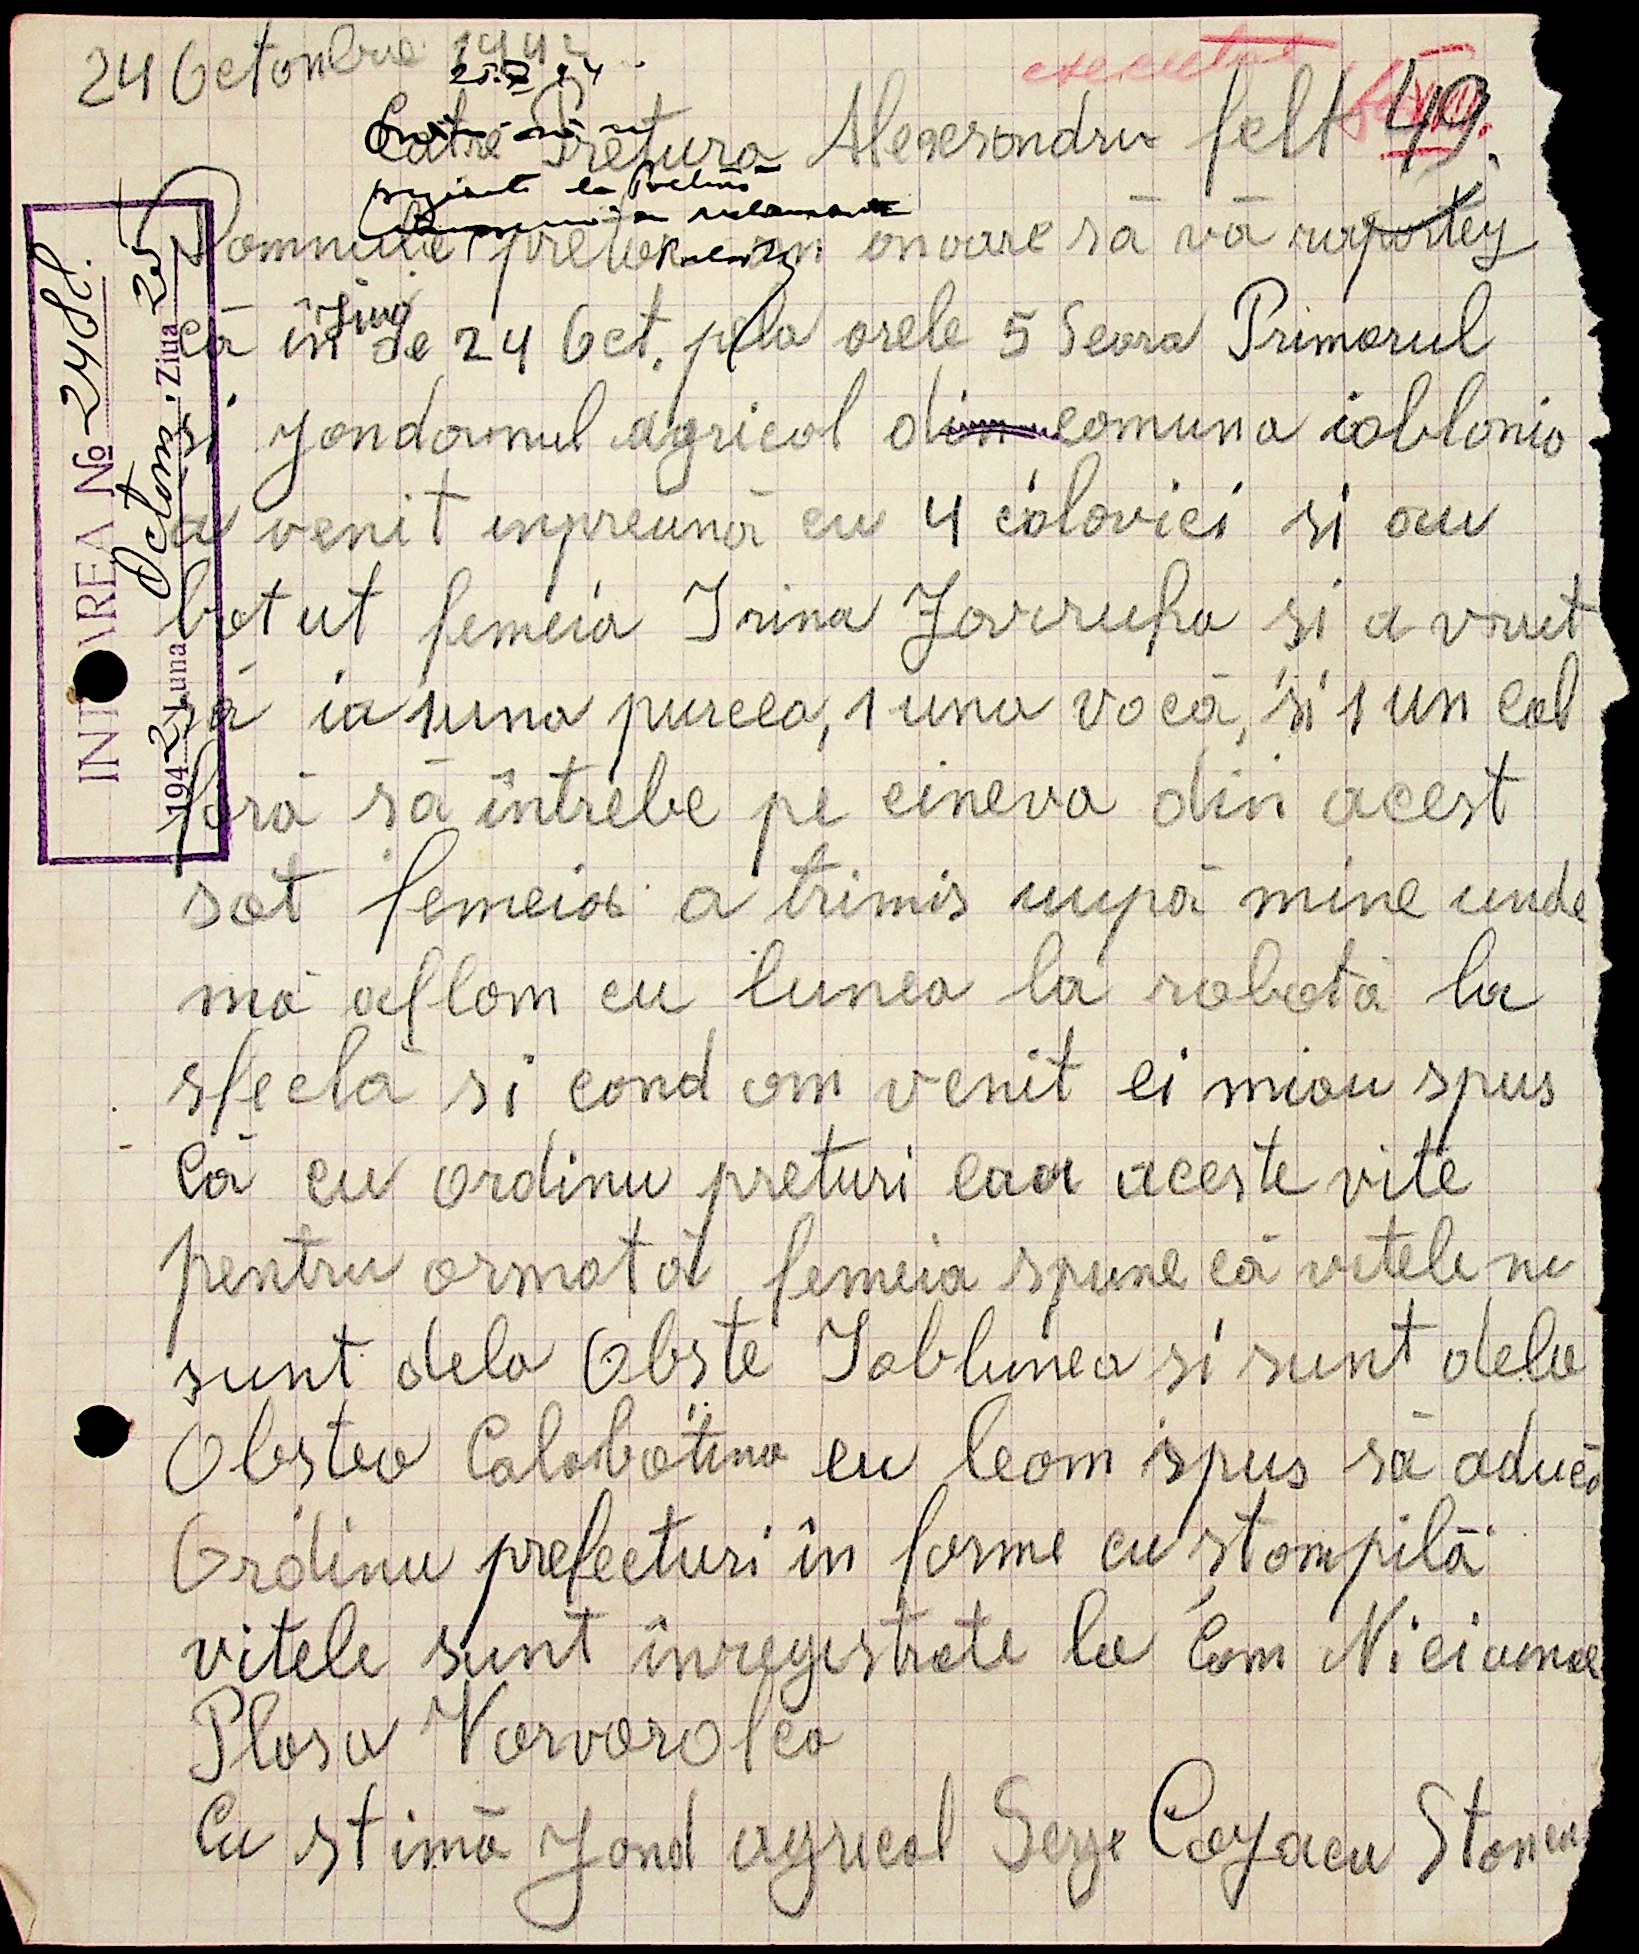 24 Octombrie 1942
executat
49.
Catre Pretura Alexsandru felt
prezinte la Pretură
reclamante
Domnule pretor am onoare să vă raportez
că în ziua de 24 Oct. pela orele 5 Seara Primarul
si jandarmul agricol din comuna iablonio
a venit inpreună cu 4 călovici si au
batut femeia Irina Zavruha si a vrut
să ia 1 una purcea, 1 una vacă, si 1 un cal
fără să întrebe pe cineva din acest
sat femeia a trimis rupă mine unde
mă aflam cu lunea la robotă la
sfeclă si cand am venit ei miau spus
Că cu ordinu preturi eaa aceste vite
pentru armată femeia spune că vitele nu
sunt dela Obste Iablunea si sunt dela
Obstea Calabatina eu leam spus să aducă
Ordinu prefecturi în forme cu stampilă
vitele sunt înregistrate la Com
Plasa Varvarolca
Cu stimă Jand agricol Serg. Cazacu
INTRAREA № 2481.
1942 Luna Octom, Ziua 25